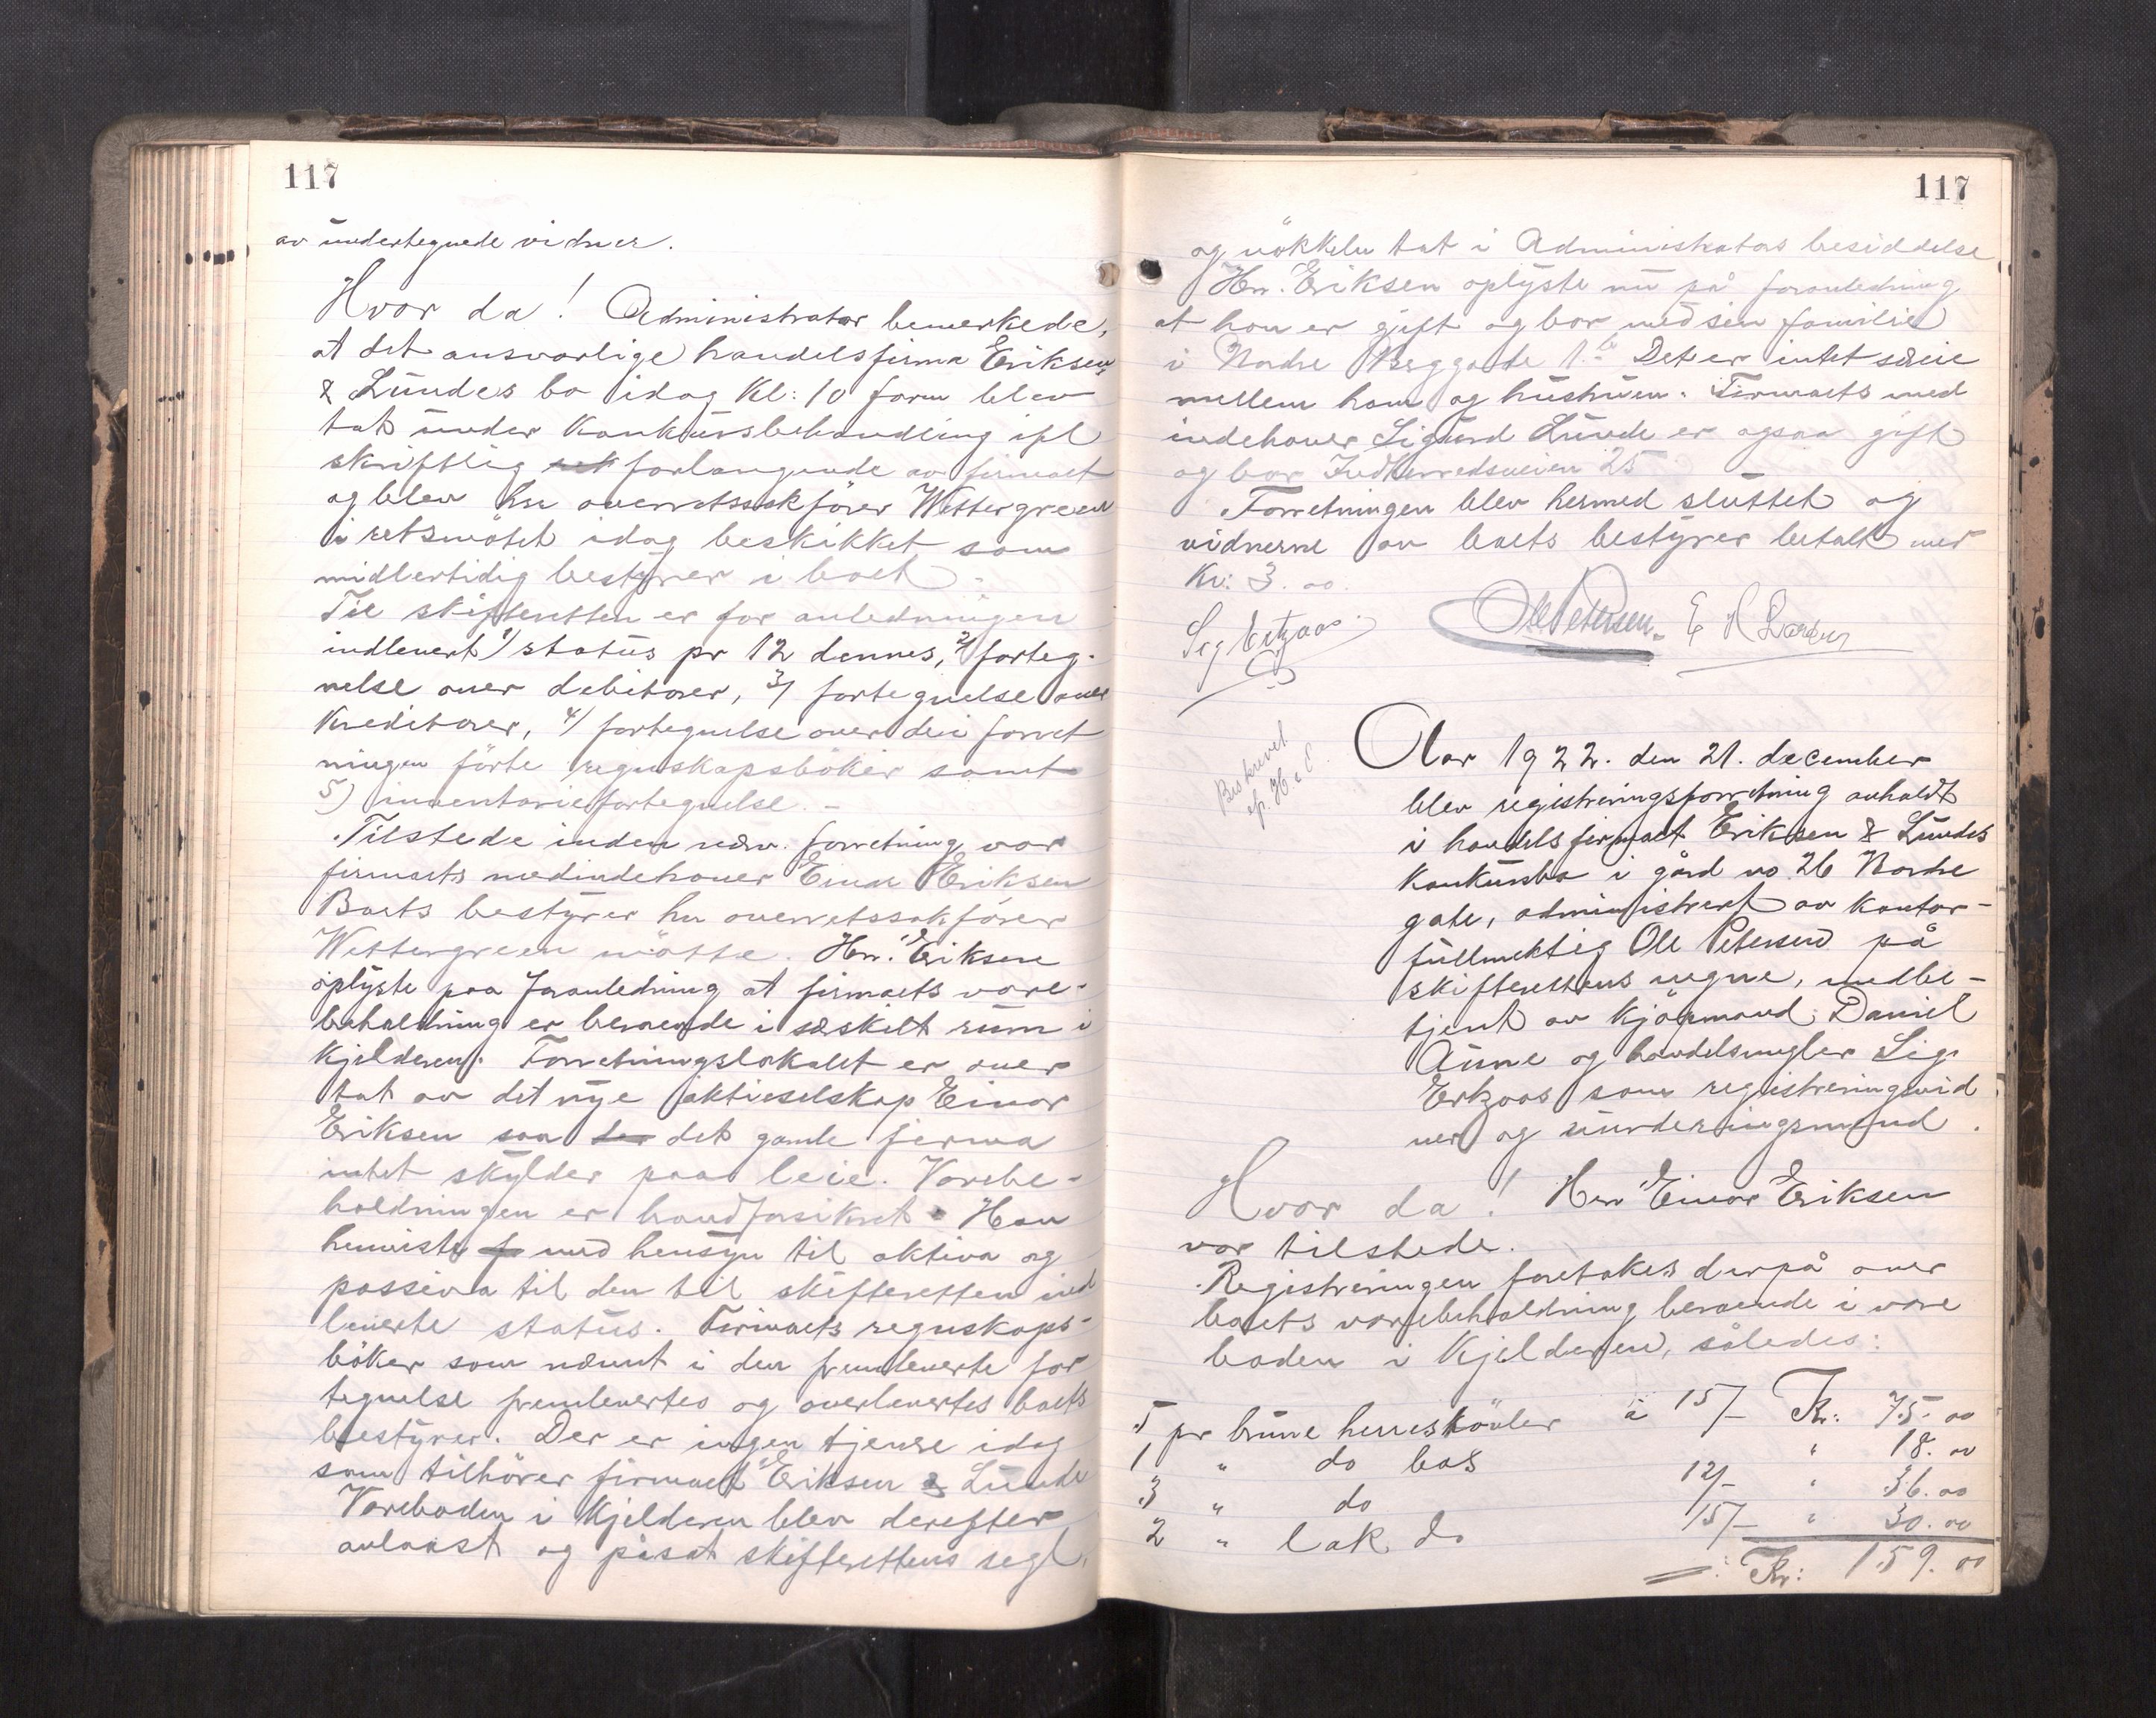 117
av undertegnede vidner.
Hvor da! Administrator bemerkede,
at det ansvarlige handelsfirma Eriksen
& Lundes bo idag Kl: 10 form blev
tat under Konkursbehandling ifl
skriftlig forlangende av firmaet
og blev hr overretssakfører Wettergreen
i retsmötet idag beskikket som
midlertidig bestyrer i boet.
Til skifteretten er for anledningen
indlevert 1) status pr 12 dennes, 2) forteg-
nelse over debitorer, 3) fortegnelse over
Kreditorer, 4) fortegnelse over de i forret
ningen förte regnskapsböker samt
5) inventariefortegnelse. -
Tilstede inden nærv. forretning var
firmaets medindehaver Einar Eriksen
Boets bestyrer hr overretssakförer
Wettergreen mötte. Hr. Eriksen
oplyste paa foranledning at firmaets vare-
beholdning er beroende i særskilt rum i
Kjelderen. Forretningslokalet er over
tat av det nye aktieselskap Einar
Eriksen saa det gamle firma
intet skylder paa leie. Varebe-
holdningen er brandforsikret. Han
henviste med hensyn til aktiva og
passiva til den til skifteretten ind
leverte status. Firmaets regnskaps-
böker som nævnt i den fremleverte for
tegnelse fremlevertes og overlevertes boets
bestyrer. Der er ingen tjenere idag
som tilhörer firmaet Eriksen & Lunde
Vareboden i Kjelderen blev derefter
avlaast og påsat skifterettens segl,
117
og nökkelen tat i Administrators besiddelse
Hr. Eriksen oplyste nu på foranledning
at han er gift og bor med sin familie
i Nordre Berggate 1 Det er intet særeie
mellem ham og hustruen. Firmaets med
indehaver Sigurd Lunde er ogsaa gift
og bor Indherredsveien 25
Forretningen blev hermed sluttet og
vidnerne av boets bestyrer betalt med
Kr: 3.00.
Sig Ertzaas. Ole Petersen. E H Larsen
Beskrevet
ef. H. e E.
Aar 1922. den 21. december
blev registreringsforretning avholdt
i handelsfirmaet Eriksen & Lundes
Konkursbo i gård no 26 Nordre
gate, administrert av kontor-
fullmektig Ole Petersen på
skifterettens vegne, medbe-
tjent av kjøpmand Daniel
Aune og handelsmegler Sig.
Ertzaas som registreringsvid
ner og vurderingsmænd.
Hvor da! Herr Einar Eriksen
var tilstede.
Registreringen foretokes derpå over
boets varebeholdning beroende i vare
boden i Kjelderen, således:
5 pr brune herresköiler à 15/- Kr: 75.00
1 " do boks " 18.00
3 " do 12/- " 36.00
2 " lak do 15/- " 30.00
Kr: 159.00